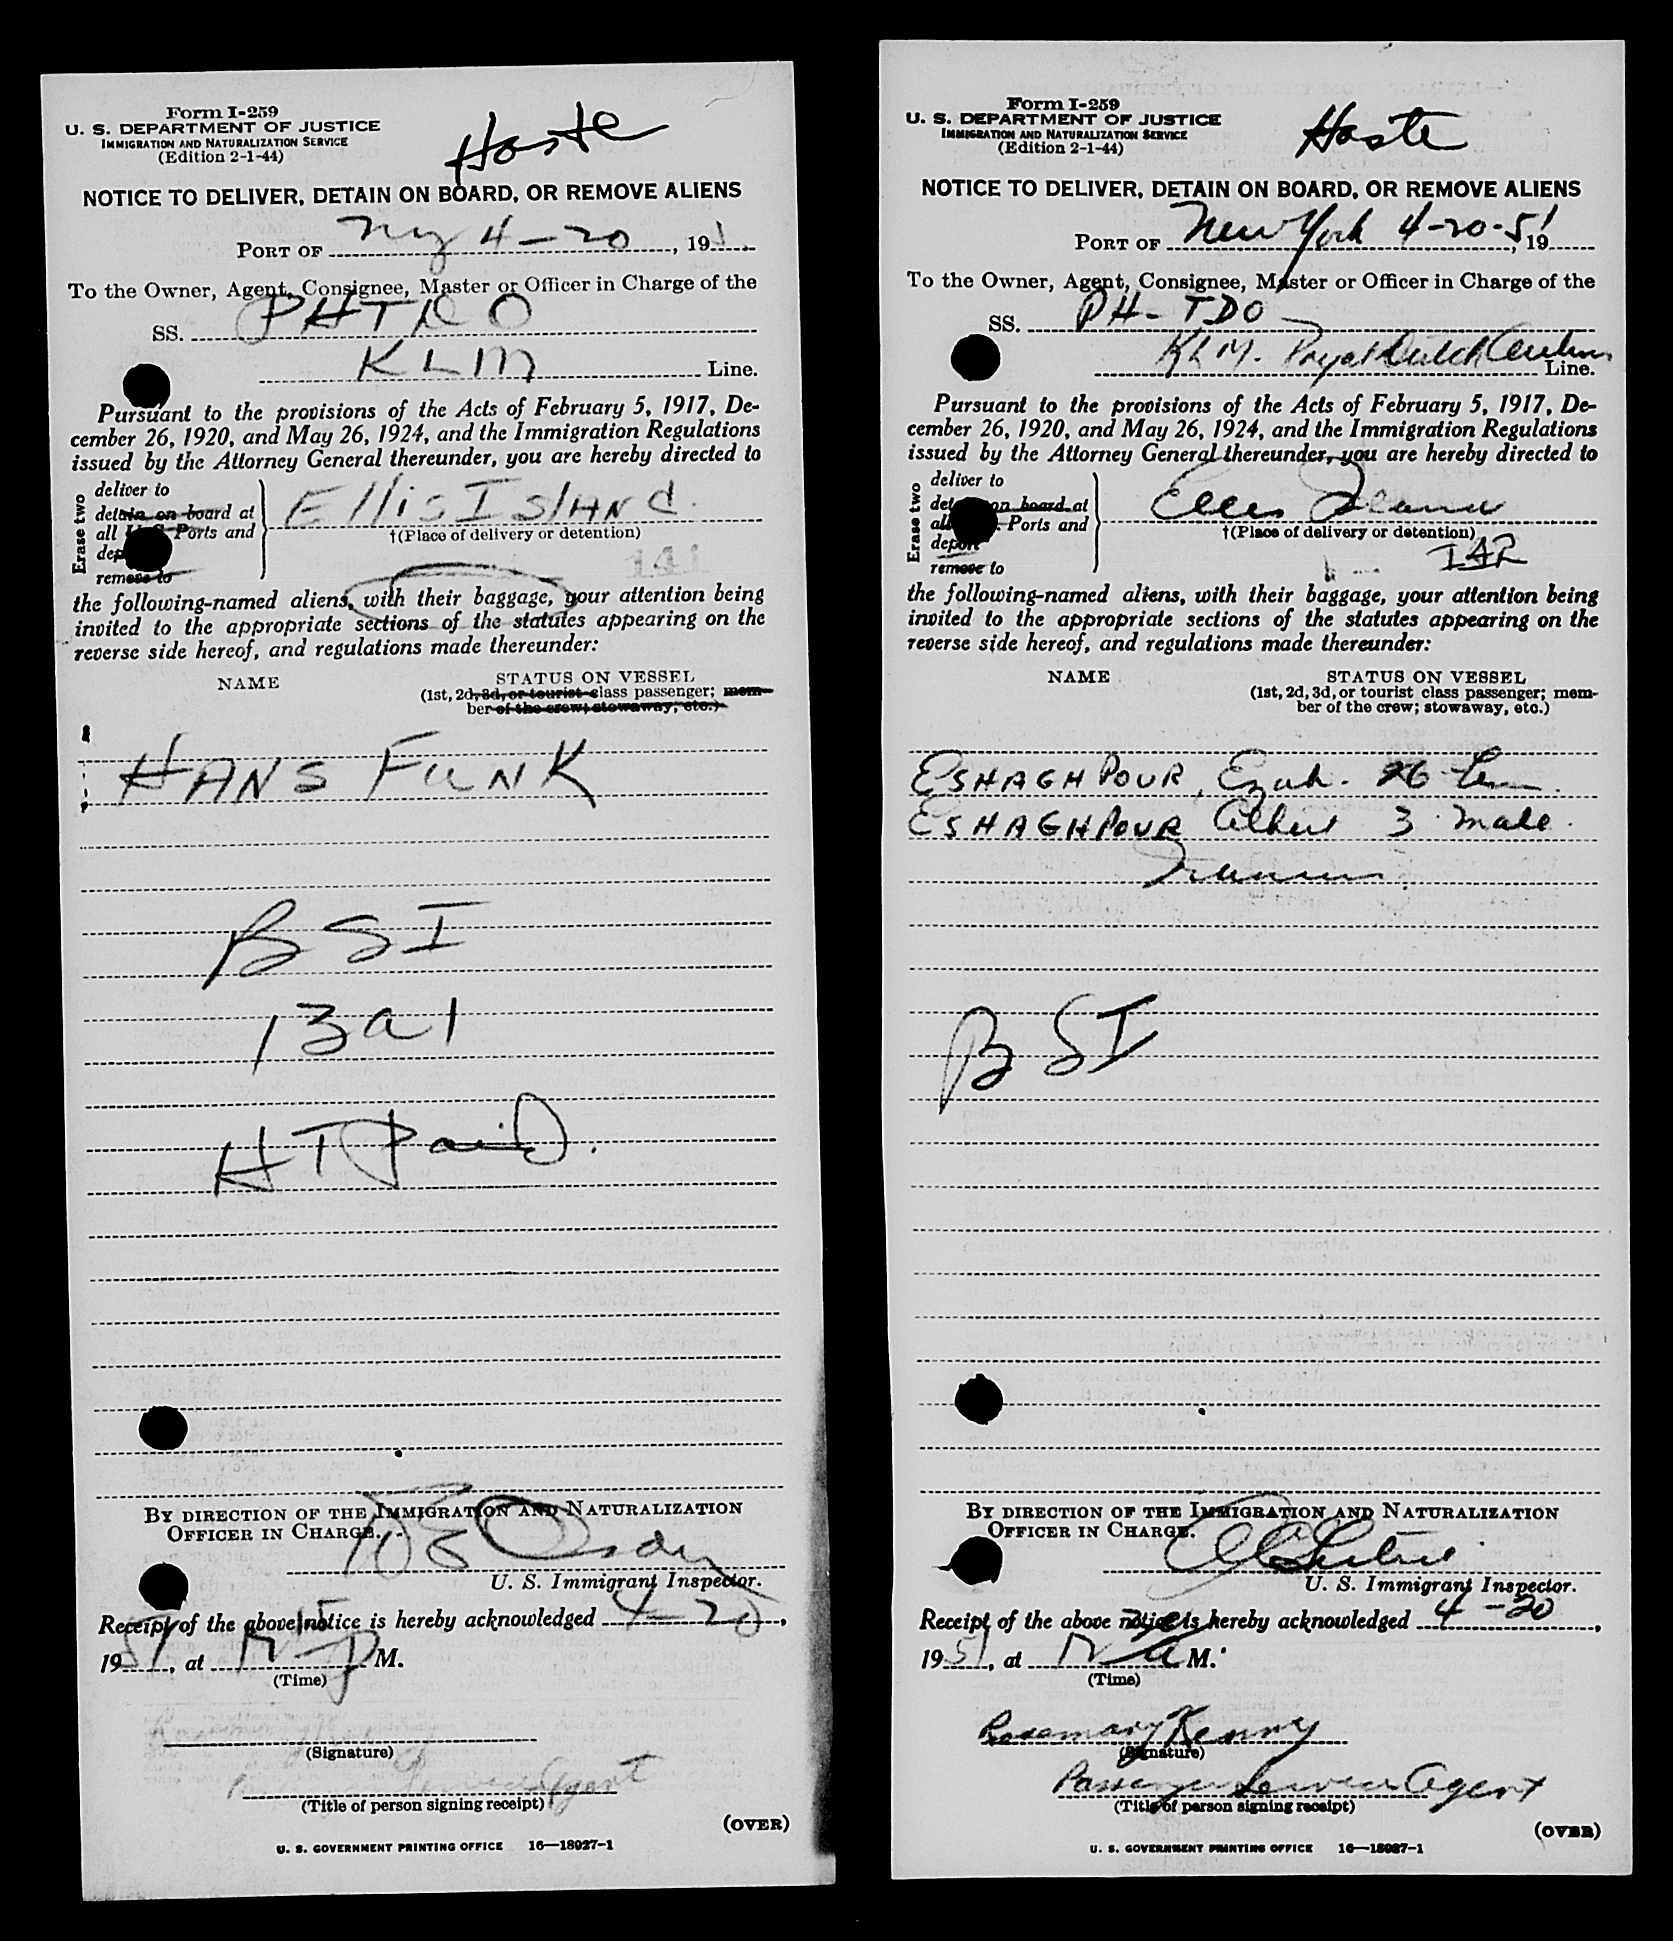 Form I-259
U. S. DEPARTMENT OF JUSTICE
IMMIGRATION AND NATURALIZATION SERVICE
(Edition 2-1-44)
Haste
NOTICE TO DELIVER, DETAIN ON BOARD, OR REMOVE ALIENS
PORT OF Ny 4-20, 19
To the Owner, Agent, Consignee, Master or Officer in Charge of the
SS. PHTDO
KLM Line.
Pursuant to the provisions of the Acts of February 5, 1917, De-
cember 26, 1920, and May 26, 1924, and the Immigration Regulations
issued by the Attorney General thereunder, you are hereby directed to
Erase two
deliver to
detain on board at
all U. S. Ports and
remove to
Ellis Island.
†(Place of delivery or detention)
141
the following-named aliens, with their baggage, your attention being
invited to the appropriate sections of the statutes appearing on the
reverse side hereof, and regulations made thereunder:
NAME STATUS ON VESSEL
(1st, 2d, 3d, or tourist class passenger; mem-
ber of the crew; stowaway, etc.)
HANS FUNK
BSI
13a1
HT Paid.
BY DIRECTION OF THE IMMIGRATION AND NATURALIZATION
OFFICER IN CHARGE.
U. S. Immigrant Inspector.
Receipt of the above notice is hereby acknowledged 4-20,
1951, at M.
(Time)
(Signature)
Service Agent
(Title of person signing receipt)
(OVER)
U. S. GOVERNMENT PRINTING OFFICE 16—18927-1
Form I-259
U. S. DEPARTMENT OF JUSTICE
IMMIGRATION AND NATURALIZATION SERVICE
(Edition 2-1-44)
Haste
NOTICE TO DELIVER, DETAIN ON BOARD, OR REMOVE ALIENS
PORT OF New York 4-20-51, 19
To the Owner, Agent, Consignee, Master or Officer in Charge of the
SS. PH-TDO
KLM. Royal Dutch Airlines Line.
Pursuant to the provisions of the Acts of February 5, 1917, De-
cember 26, 1920, and May 26, 1924, and the Immigration Regulations
issued by the Attorney General thereunder, you are hereby directed to
Erase two
deliver to
on board at
Ports and
deport
remove to
Ellis Island
†(Place of delivery or detention)
the following-named aliens, with their baggage, your attention being
invited to the appropriate sections of the statutes appearing on the
reverse side hereof, and regulations made thereunder:
NAME STATUS ON VESSEL
(1st, 2d, 3d, or tourist class passenger; mem-
ber of the crew; stowaway, etc.)
ESHAGHPOUR, 26
ESHAGHPOUR Albert 3 male
BSI
BY DIRECTION OF THE IMMIGRATION AND NATURALIZATION
OFFICER IN CHARGE.
U. S. Immigrant Inspector.
Receipt of the above notice is hereby acknowledged 4-20,
1951, at M.
(Time)
Rosemary Kenny
(Signature)
Passenger Service Agent
(Title of person signing receipt)
(OVER)
U. S. GOVERNMENT PRINTING OFFICE 16—18927-1